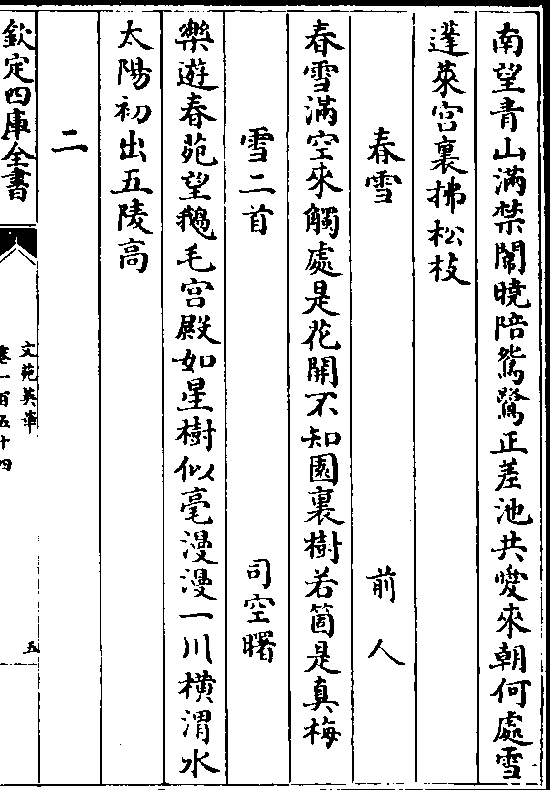 南望青山滿禁闈曉陪鴛鷺正差池共愛來朝何處雪
蓬萊宫裏拂松枝
春雪 前人
春雪滿空來觸處是花開不知園裏樹若箇是真梅
雪二首 司空曙
樂遊春苑望鵝毛宫殿如星樹似毫漫漫一川橫渭水
太陽初出五陵高
二
欽定四庫全書
文苑英華
卷一百五十四
五